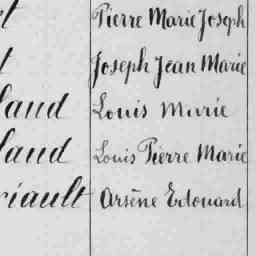 t Pierre Marie Joseph
t Joseph Jean Marie
laud Louis Marie
laud Louis Pierre Marie
riault Arsène Edouard